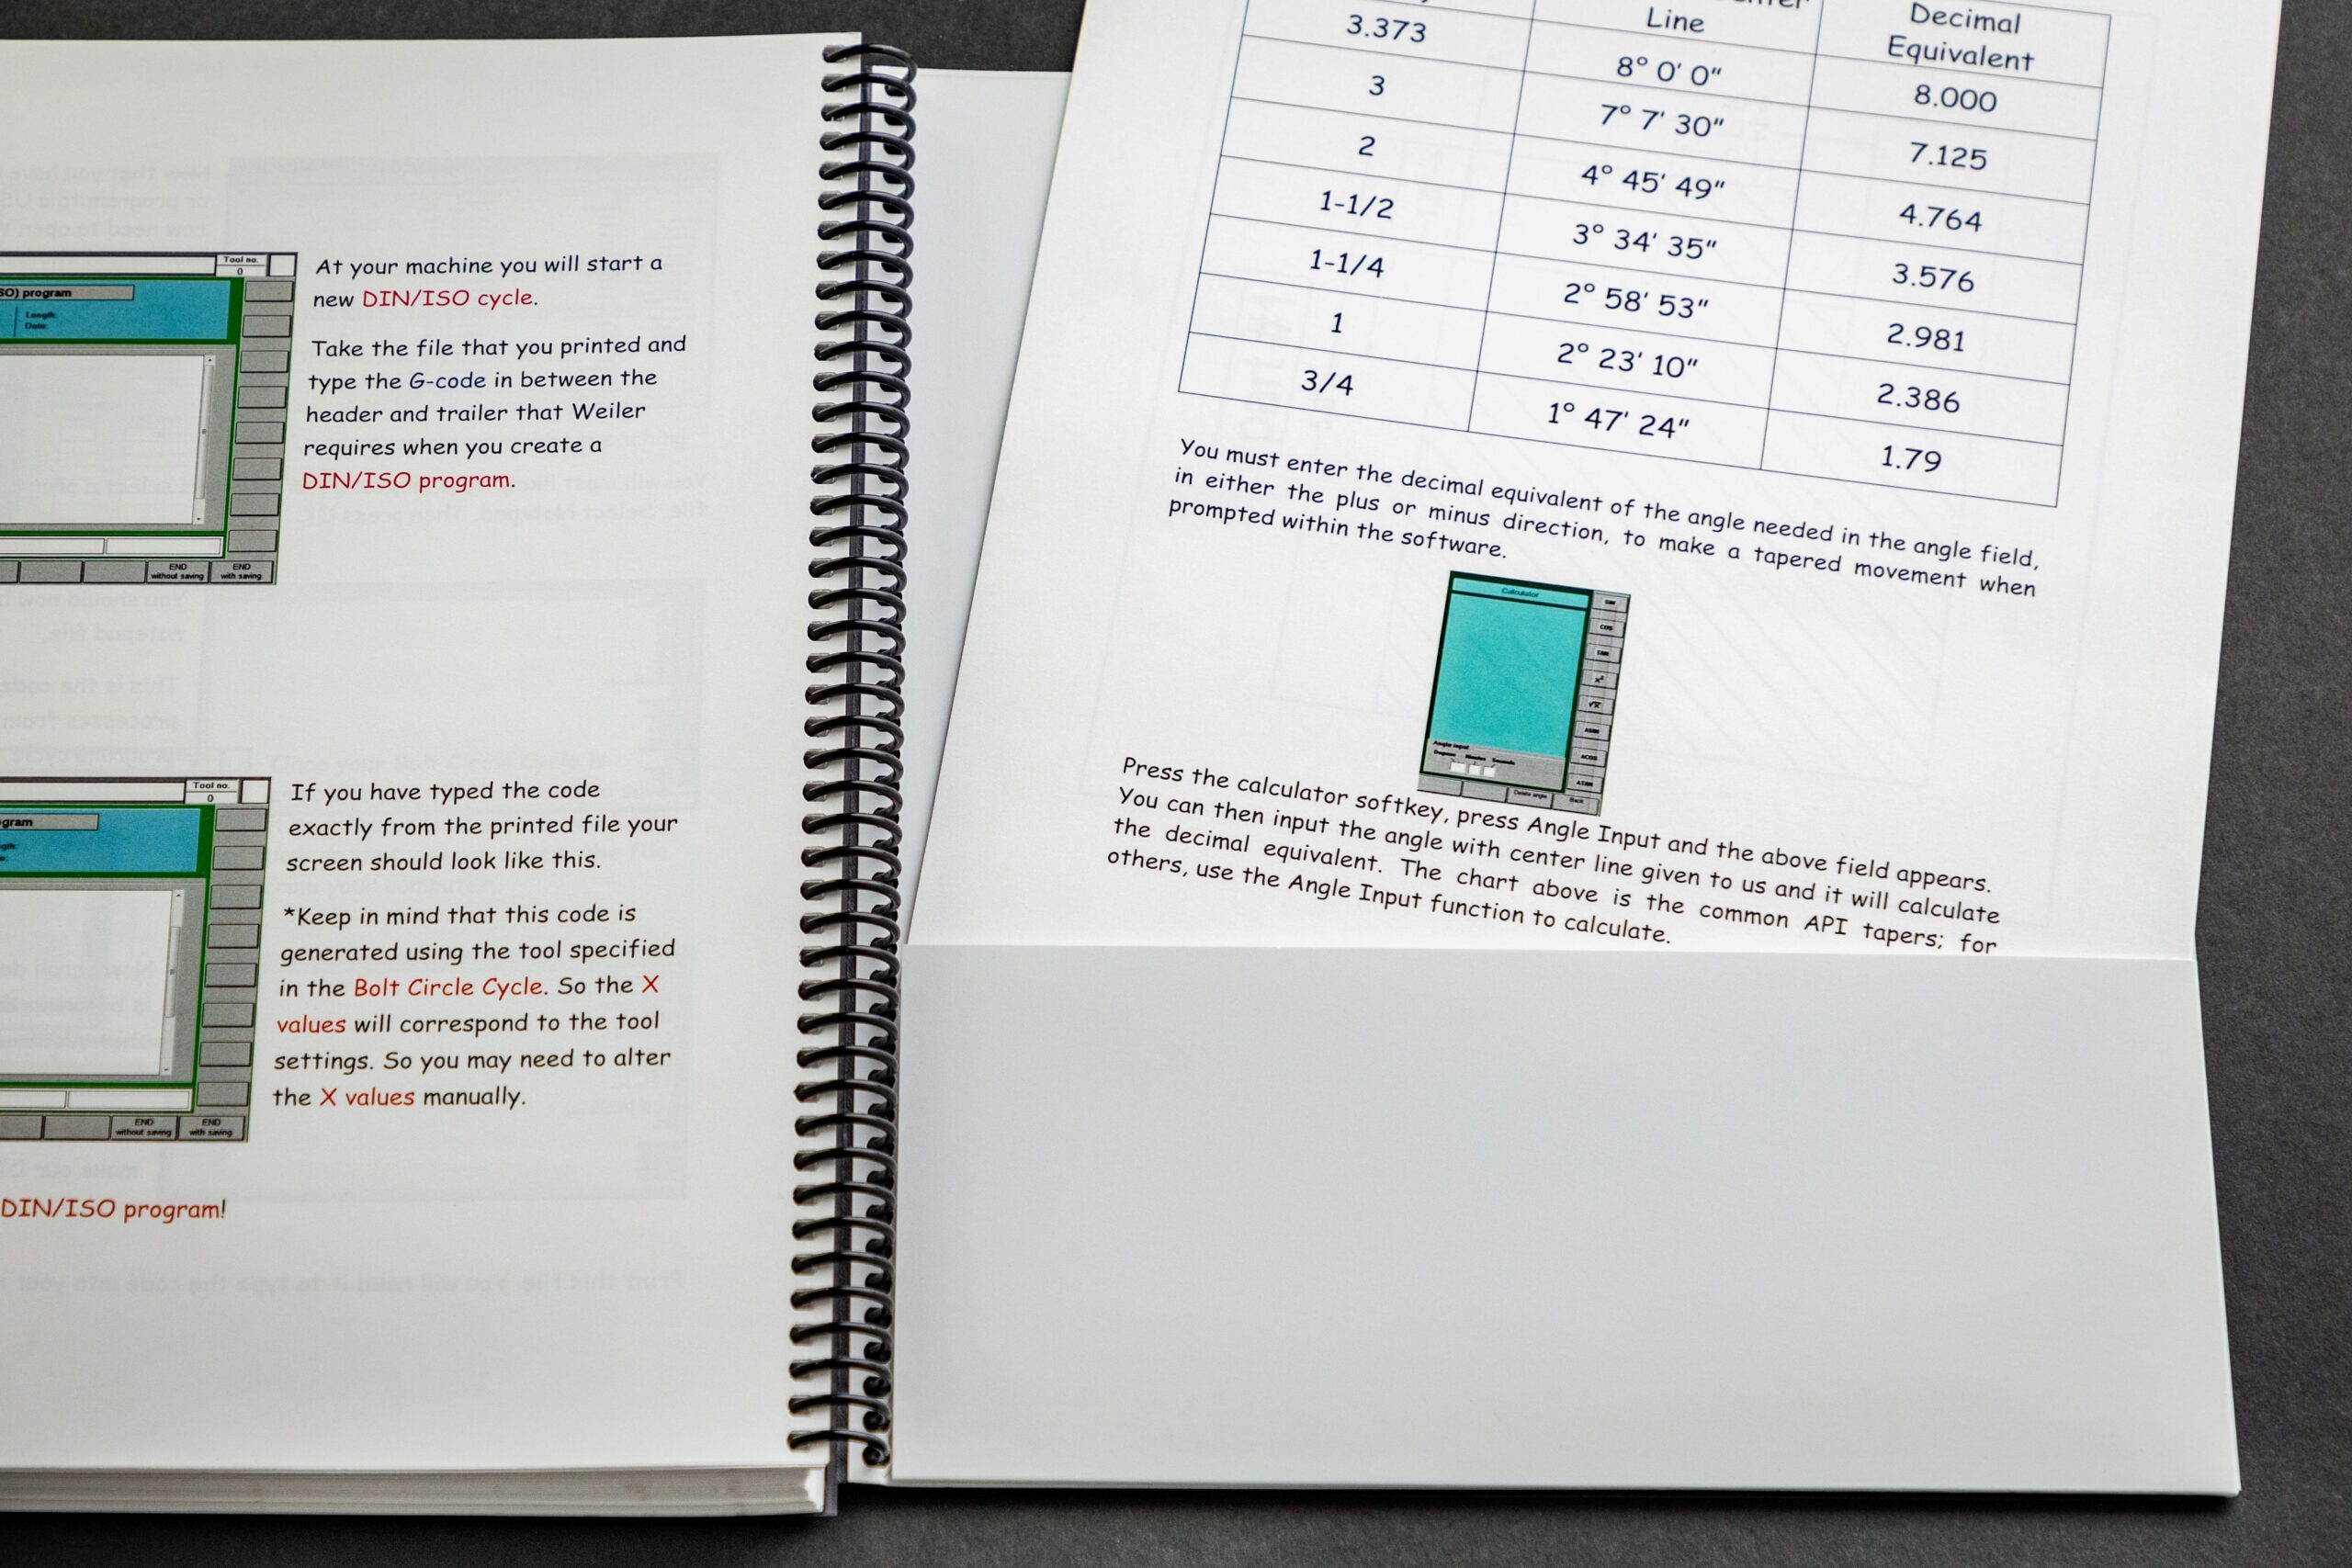 Tool no.
0
SO) program
Length:
Date:
END
without saving
END
with saving
At your machine you will start a
new DIN/ISO cycle.
Take the file that you printed and
type the G-code in between the
header and trailer that Weiler
requires when you create a
DIN/ISO program.
Tool no.
0
gram
gth:
e:
END
without saving
END
with saving
If you have typed the code
exactly from the printed file your
screen should look like this.
*Keep in mind that this code is
generated using the tool specified
in the Bolt Circle Cycle. So the X
values will correspond to the tool
settings. So you may need to alter
the X values manually.
DIN/ISO program!
Line
Decimal
Equivalent
3.373 8° 0' 0" 8.000
3 7° 7' 30" 7.125
2 4° 45' 49" 4.764
1-1/2 3° 34' 35" 3.576
1-1/4 2° 58' 53" 2.981
1 2° 23' 10" 2.386
3/4 1° 47' 24" 1.79
You must enter the decimal equivalent of the angle needed in the angle field,
in either the plus or minus direction, to make a tapered movement when
prompted within the software.
Calculator
SIN
COS
TAN
x²
√x
ASIN
ACOS
ATAN
Angle input
Degrees Minutes Seconds
Delete angle
Back
Press the calculator softkey, press Angle Input and the above field appears.
You can then input the angle with center line given to us and it will calculate
the decimal equivalent. The chart above is the common API tapers; for
others, use the Angle Input function to calculate.